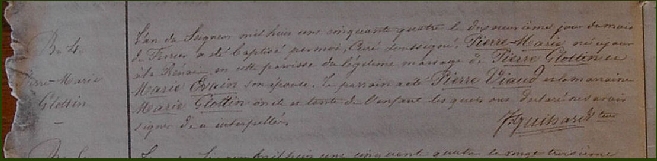 B. 4
Pierre-Marie
Glottin
L'an du Seigneur mil huit cent cinquante quatre le dix neuvième jour du mois
de Février a été baptisé par moi, Curé soussigné Pierre-Marie, né ce jour
à la en cette paroisse du légitime mariage de Pierre Glottin et
Marie son épouse. Le parrain a été Pierre Viaud et la marraine
Marie Glottin oncle et tante de l'enfant lesquels ont déclaré ne savoir
signer de ce interpellés.